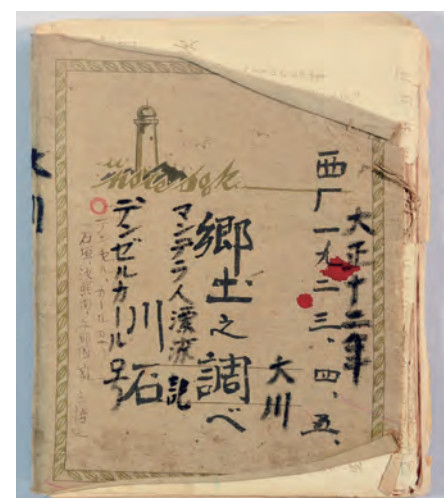 Note Book
大正十二年
西厂一九二三、四、五、
大川
郷土之調べ
マンデラ人漂流記
川石
デンゼルカール号
大川